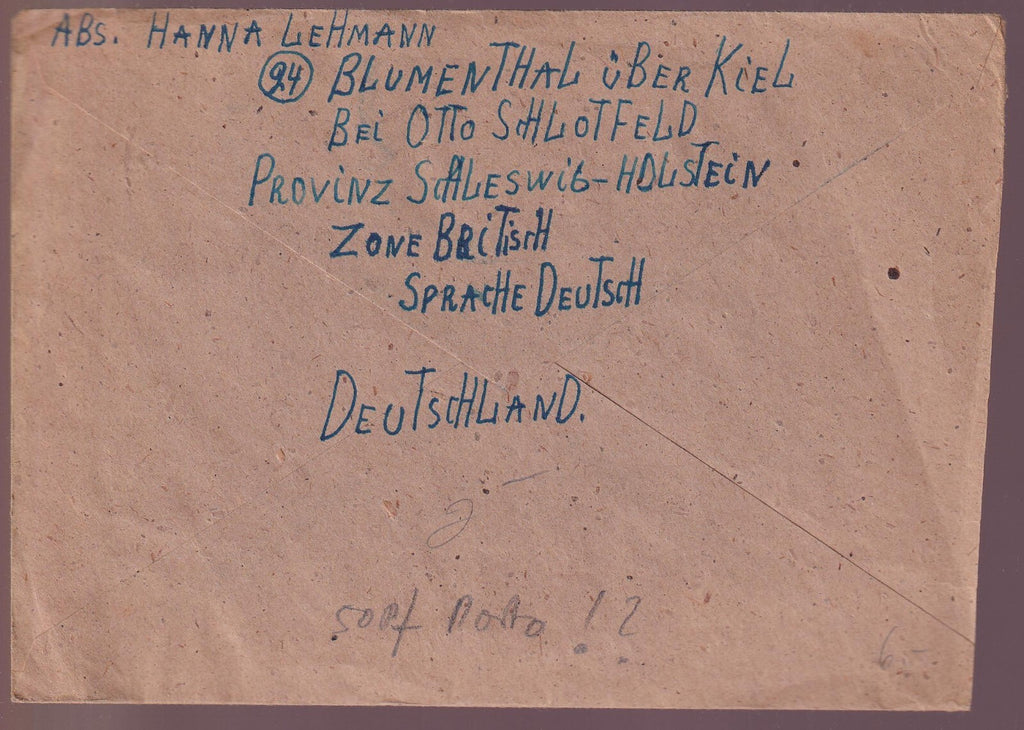 ABS. HANNA LEHMANN
(24) BLUMENTHAL ÜBER KIEL
BEI OTTO SCHLOTFELD
PROVINZ SCHLESWIG-HOLSTEIN
ZONE BRITISCH
SPRACHE DEUTSCH
DEUTSCHLAND.
50 Pf Porto !?